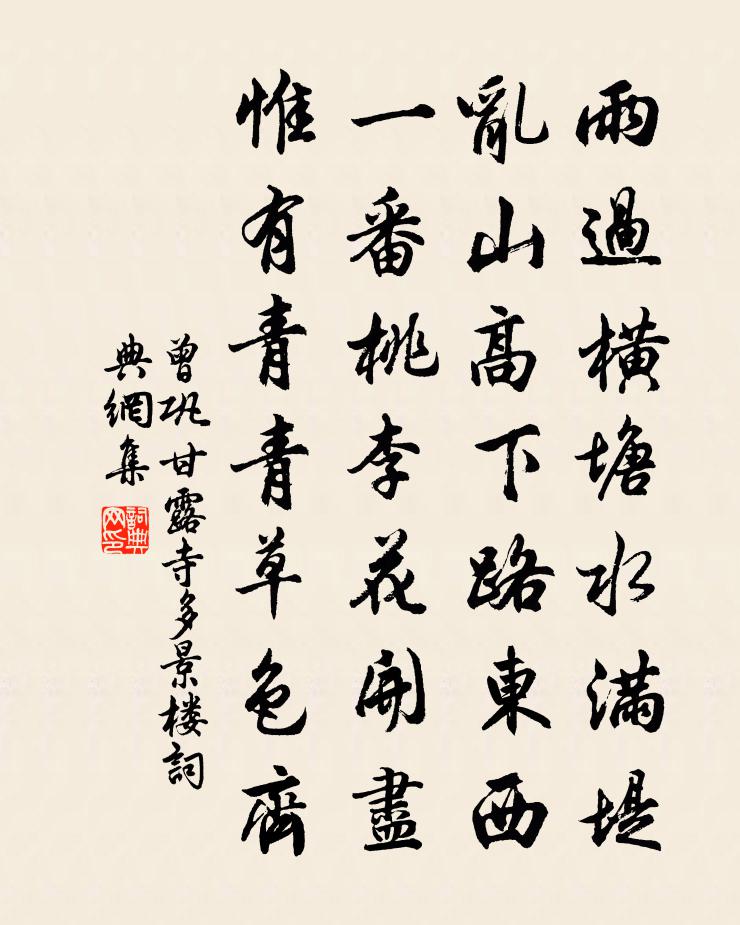 雨過橫塘水滿堤
亂山高下路東西
一番桃李花開盡
惟有青青草色齊
曾巩甘露寺多景楼詞
典網集
詞典网印